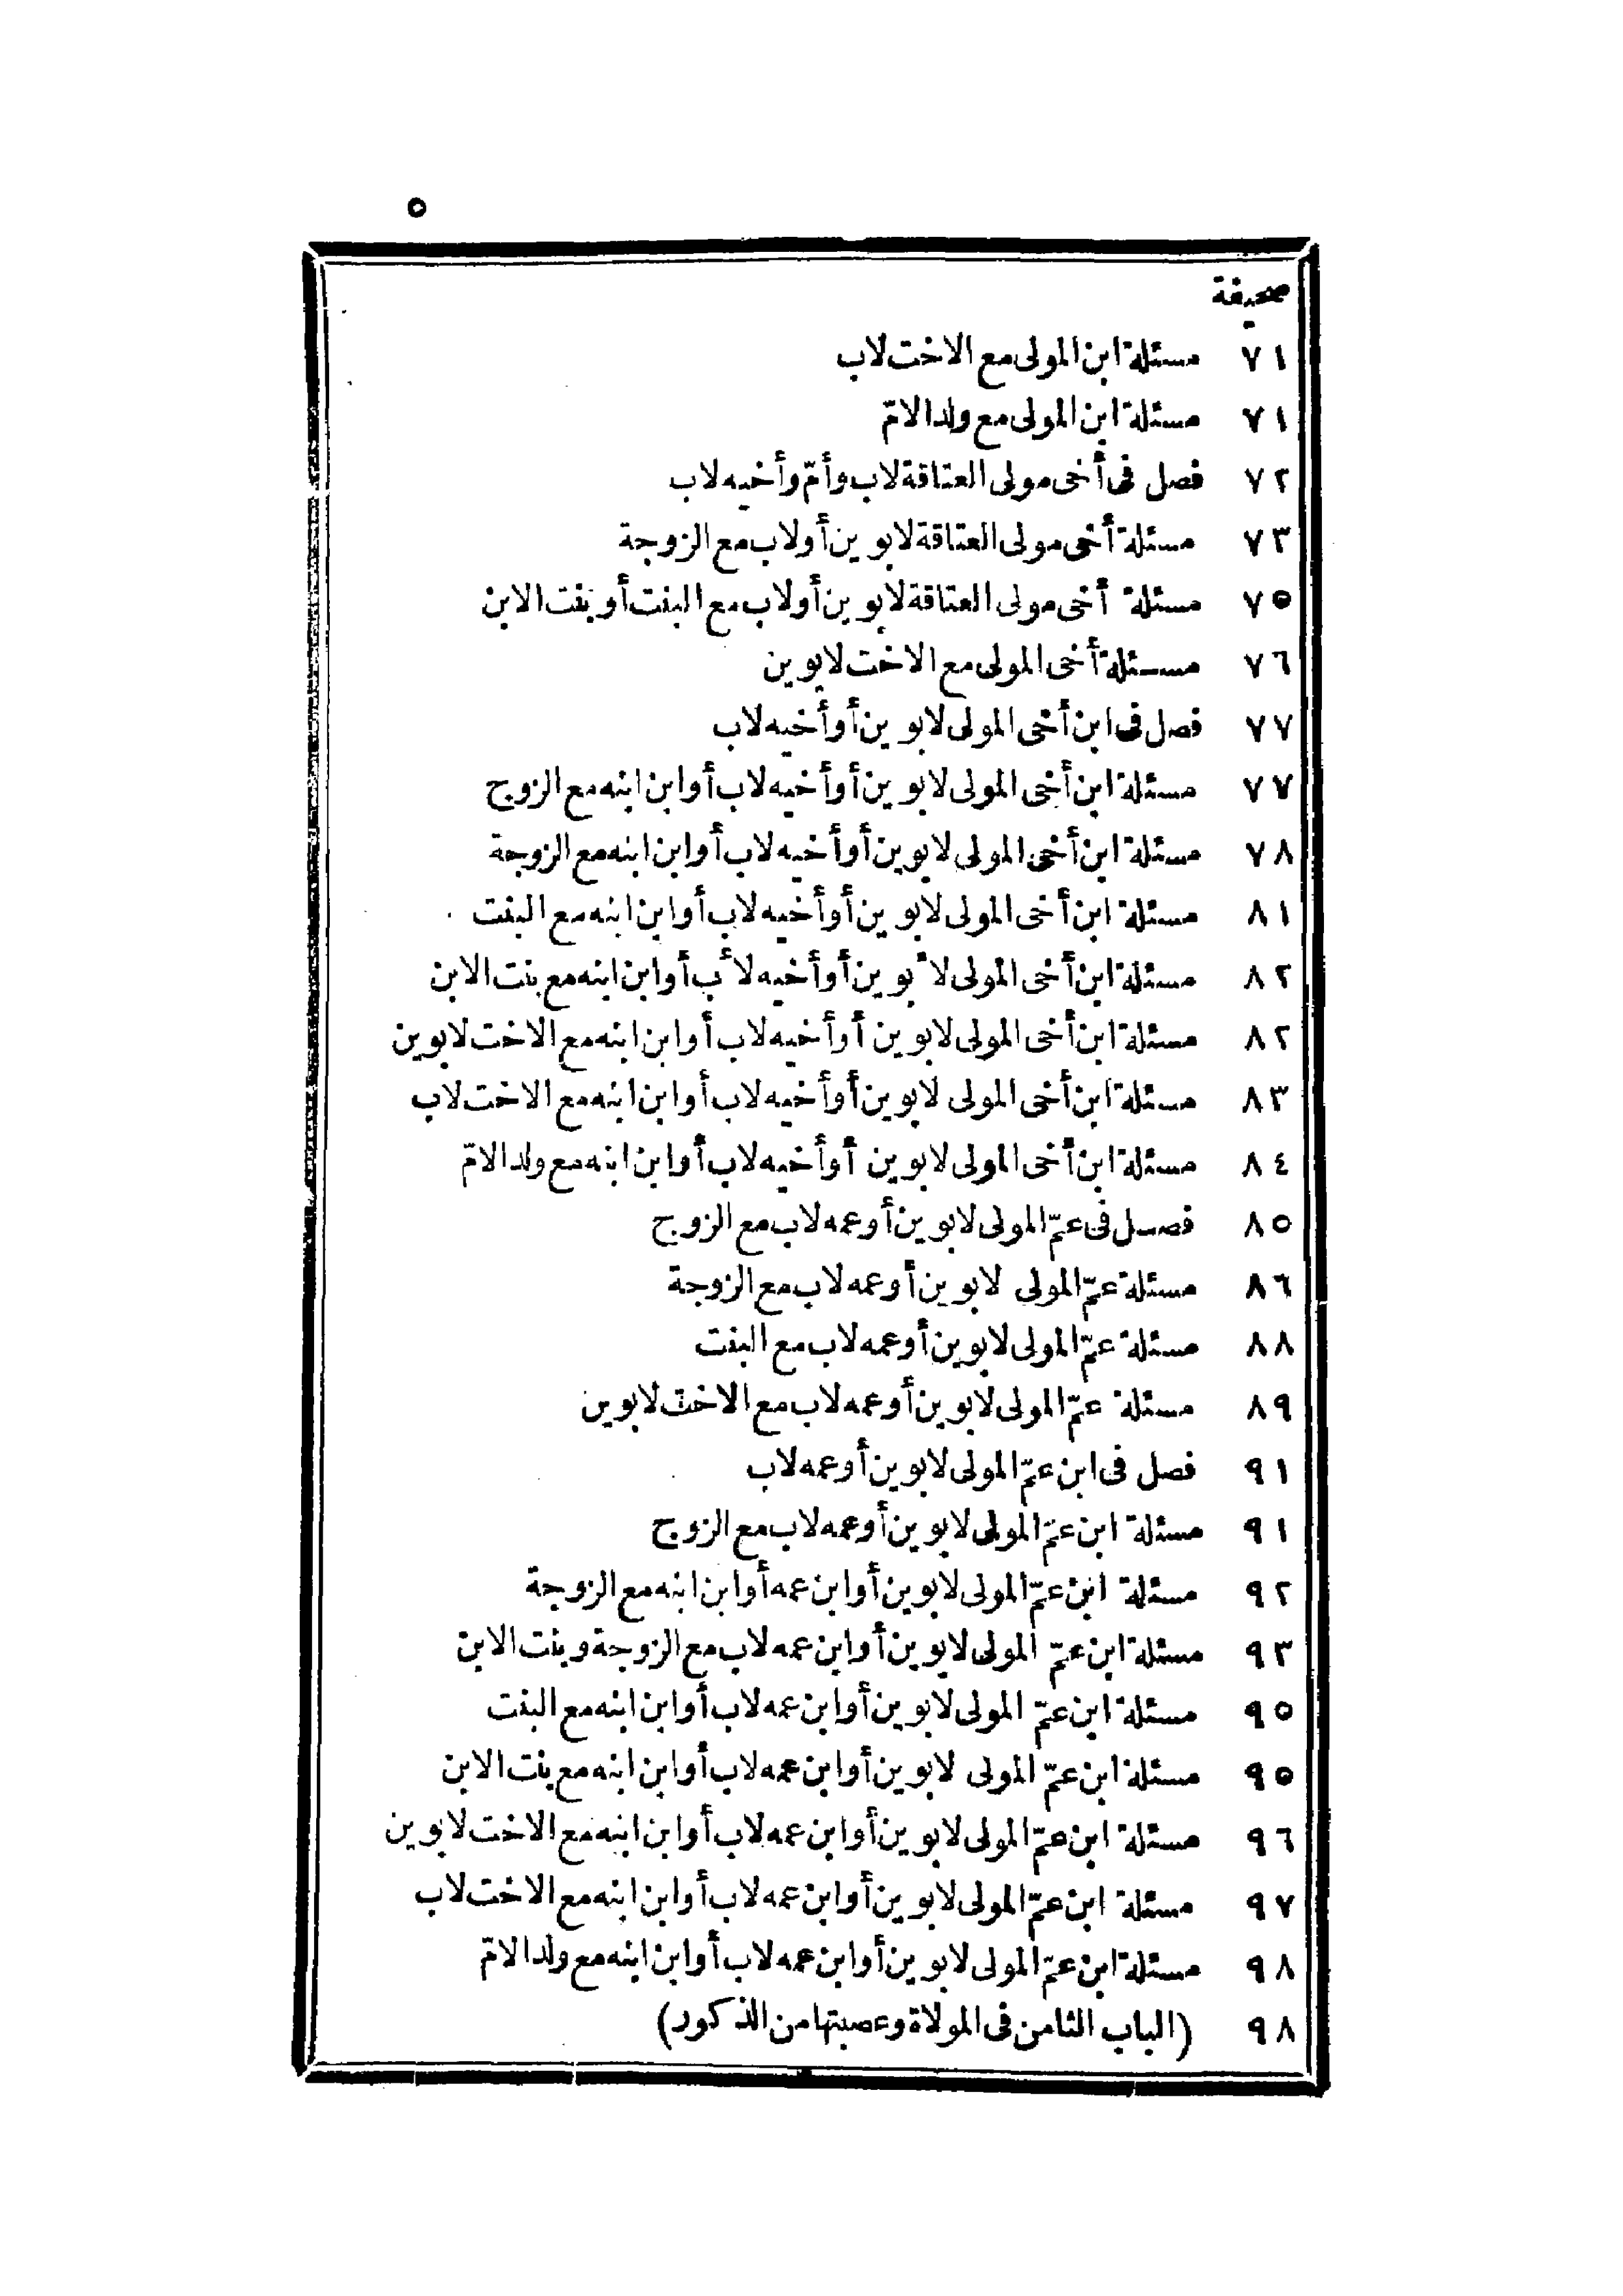 ٥
صحيفة
٧١ مسئلة ابن المولى مع الاخت لاب
٧١ مسئلة ابن المولى مع ولد الامّ
٧٢ فصل فى أخى مولى العتاقة لاب وأمّ وأخيه لاب
٧٣ مسئلة أخى مولى العتاقة لابوين أولاب مع الزوجة
٧٥ مسئلة أخى مولى العتاقة لابوين أولاب مع البنت أو بنت الابن
٧٦ مسئلة أخى المولى مع الاخت لابوين
٧٧ فصل فى ابن أخى المولى لابوين أو أخيه لاب
٧٧ مسئلة ابن أخى المولى لابوين أو أخيه لاب أو ابن ابنه مع الزوج
٧٨ مسئلة ابن أخى المولى لابوين أو أخيه لاب أو ابن ابنه مع الزوجة
٨١ مسئلة ابن أخى المولى لابوين أو أخيه لاب أو ابن ابنه مع البنت
٨٢ مسئلة ابن أخى المولى لأبوين أو أخيه لأب أو ابن ابنه مع بنت الابن
٨٢ مسئلة ابن أخى المولى لابوين أو أخيه لاب أو ابن ابنه مع الاخت لابوين
٨٣ مسئلة ابن أخى المولى لابوين أو أخيه لاب أو ابن ابنه مع الاخت لاب
٨٤ مسئلة ابن أخى المولى لابوين أو أخيه لاب أو ابن ابنه مع ولد الامّ
٨٥ فصل فى عمّ المولى لابوين أو عمه لاب مع الزوج
٨٦ مسئلة عمّ المولى لابوين أو عمه لاب مع الزوجة
٨٨ مسئلة عمّ المولى لابوين أو عمه لاب مع البنت
٨٩ مسئلة عمّ المولى لابوين أو عمه لاب مع الاخت لابوين
٩١ فصل فى ابن عمّ المولى لابوين أو عمه لاب
٩١ مسئلة ابن عمّ المولى لابوين أو عمه لاب مع الزوج
٩٢ مسئلة ابن عمّ المولى لابوين أو ابن عمه أو ابن ابنه مع الزوجة
٩٣ مسئلة ابن عمّ المولى لابوين أو ابن عمه لاب مع الزوجة وبنت الابن
٩٥ مسئلة ابن عمّ المولى لابوين أو ابن عمه لاب أو ابن ابنه مع البنت
٩٥ مسئلة ابن عمّ المولى لابوين أو ابن عمه لاب أو ابن ابنه مع بنت الابن
٩٦ مسئلة ابن عمّ المولى لابوين أو ابن عمه لاب أو ابن ابنه مع الاخت لابوين
٩٧ مسئلة ابن عمّ المولى لابوين أو ابن عمه لاب أو ابن ابنه مع الاخت لاب
٩٨ مسئلة ابن عمّ المولى لابوين أو ابن عمه لاب أو ابن ابنه مع ولد الامّ
٩٨ (الباب الثامن فى المولاة وعصبتها من الذكور)